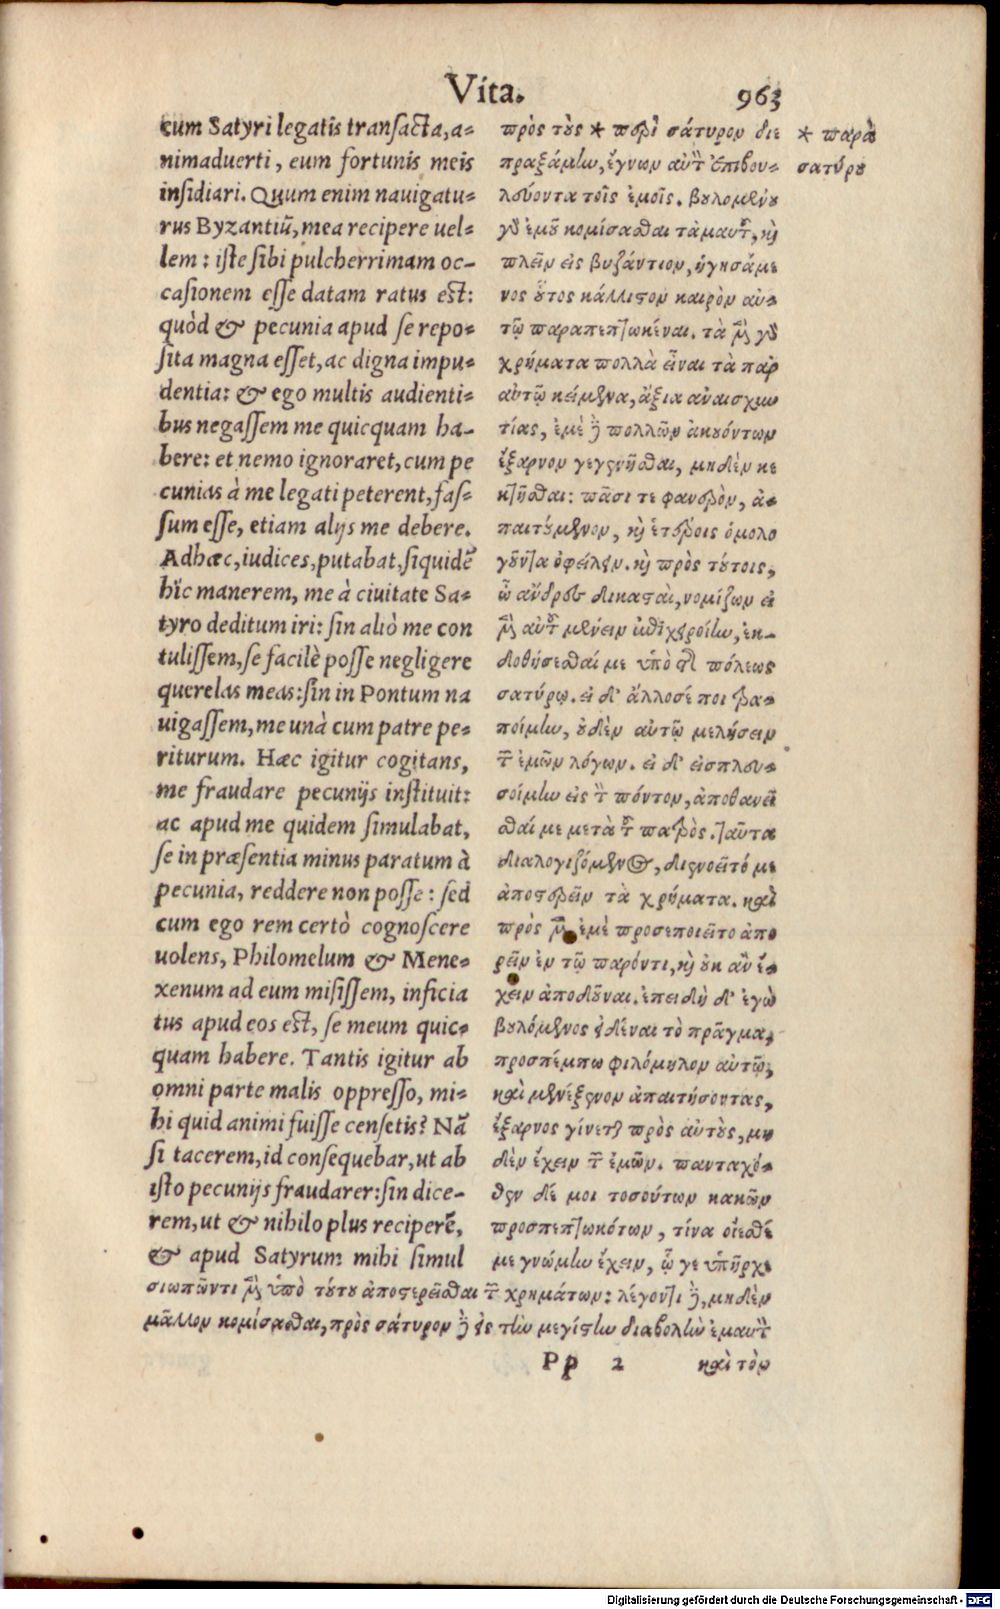 Vita.
963
cum Satyri legatis transacta, a-
nimaduerti, eum fortunis meis
insidiari. Quum enim nauigatu-
rus Byzantiũ, mea recipere uel-
lem: iste sibi pulcherrimam oc-
casionem esse datam ratus est:
quòd & pecunia apud se repo-
sita magna esset, ac digna impu-
dentia: & ego multis audienti-
bus negassem me quicquam ha-
bere: et nemo ignoraret, cum pe
cunias à me legati peterent, fas-
sum esse, etiam alijs me debere.
Adhæc, iudices, putabat, siquidẽ
hîc manerem, me à ciuitate Sa-
tyro deditum iri: sin aliò me con
tulissem, se facilè posse negligere
querelas meas: sin in Pontum na
uigassem, me unà cum patre pe-
riturum. Hæc igitur cogitans,
me fraudare pecunijs instituit:
ac apud me quidem simulabat,
se in præsentia minus paratum à
pecunia, reddere non posse: sed
cum ego rem certò cognoscere
uolens, Philomelum & Mene-
xenum ad eum misissem, inficia
tus apud eos est, se meum quic-
quam habere. Tantis igitur ab
omni parte malis oppresso, mi-
hi quid animi fuisse censetis? Nã
si tacerem, id consequebar, ut ab
isto pecunijs fraudarer: sin dice-
rem, ut & nihilo plus reciperẽ,
& apud Satyrum mihi simul
πρὸς τοὺς * περὶ σάτυρον διε
πραξάμην, ἔγνων αὐτὸν ἐπιβου-
λεύοντα τοῖς ἐμοῖς. βουλομένου
γὸ ἐμοῦ κομίσασθαι τἀμαυτοῦ, καὶ
πλεῖν εἰς βυζάντιον, ἡγησάμε
νος οὗτος κάλλιστον καιρὸν αὑ-
τῷ παραπεπτωκέναι. τὰ μὲν γὸ
χρήματα πολλὰ εἶναι τὰ παρ
αὐτῷ κείμενα, ἄξια ἀναισχυν
τίας, ἐμὲ δὲ πολλῶν ἀκουόντων
ἔξαρνον γεγενῆσθαι, μηδὲν κε
κτῆσθαι: πᾶσι τε φανερὸν, ἀ-
παιτούμενον, καὶ ἑτέροις ὁμολο
γοῦντα ὀφείλειν. καὶ πρὸς τούτοις,
ὦ ἄνδρες δικασταὶ, νομίζων εἰ
μὲν αὐτοῦ μένειν ἐπιχειροίην, ἐκ-
δοθήσεσθαί με ὑπὸ τῆς πόλεως
σατύρῳ. εἰ δ' ἄλλοσέ ποι τρα-
ποίμην, οὐδὲν αὐτῷ μελήσειν
τῶν ἐμῶν λόγων. εἰ δ' εἰσπλευ-
σοίμην εἰς τὸν πόντον, ἀποθανεῖ
σθαί με μετὰ τοῦ πατρὸς. ταῦτα
διαλογιζόμενος, διενοεῖτό με
ἀποστερεῖν τὰ χρήματα. καὶ
πρὸς μὲν ἐμὲ προσεποιεῖτο ἀπο
ρεῖν ἐν τῷ παρόντι, καὶ οὐκ ἂν ἔ-
χειν ἀποδοῦναι. ἐπειδὴ δ' ἐγὼ
βουλόμενος εἰδέναι τὸ πρᾶγμα,
προσπέμπω φιλόμηλον αὐτῷ,
καὶ μενέξενον ἀπαιτήσοντας,
ἔξαρνος γίνεται πρὸς αὐτοὺς, μη
δὲν ἔχειν τῶν ἐμῶν. πανταχό-
θεν δέ μοι τοσούτων κακῶν
προσπεπτωκότων, τίνα οἴεσθέ
με γνώμην ἔχειν, ᾧ γε ὑπῆρχε
σιωπῶντι μὲν ὑπὸ τούτου ἀποστερεῖσθαι τῶν χρημάτων: λέγοντι δὲ, μηδὲν
μᾶλλον κομίσασθαι, πρὸς σάτυρον δὲ εἰς τὴν μεγίστην διαβολὴν ἐμαυτὸν
* παρὰ
σατύρου
Pp 2
καὶ τὸν
Digitalisierung gefördert durch die Deutsche Forschungsgemeinschaft - DFG